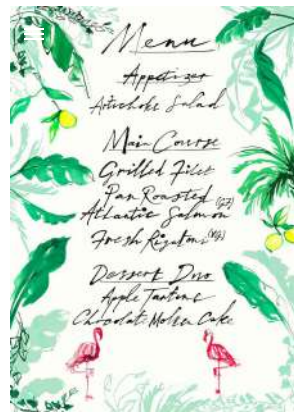 Menu
Appetizer
Artichoke Salad
Main Course
Grilled Filet
Pan Roasted (GF)
Atlantic Salmon
Fresh Rigatoni (VG)
Dessert Duo
Apple Tartine
Chocolate Molten Cake